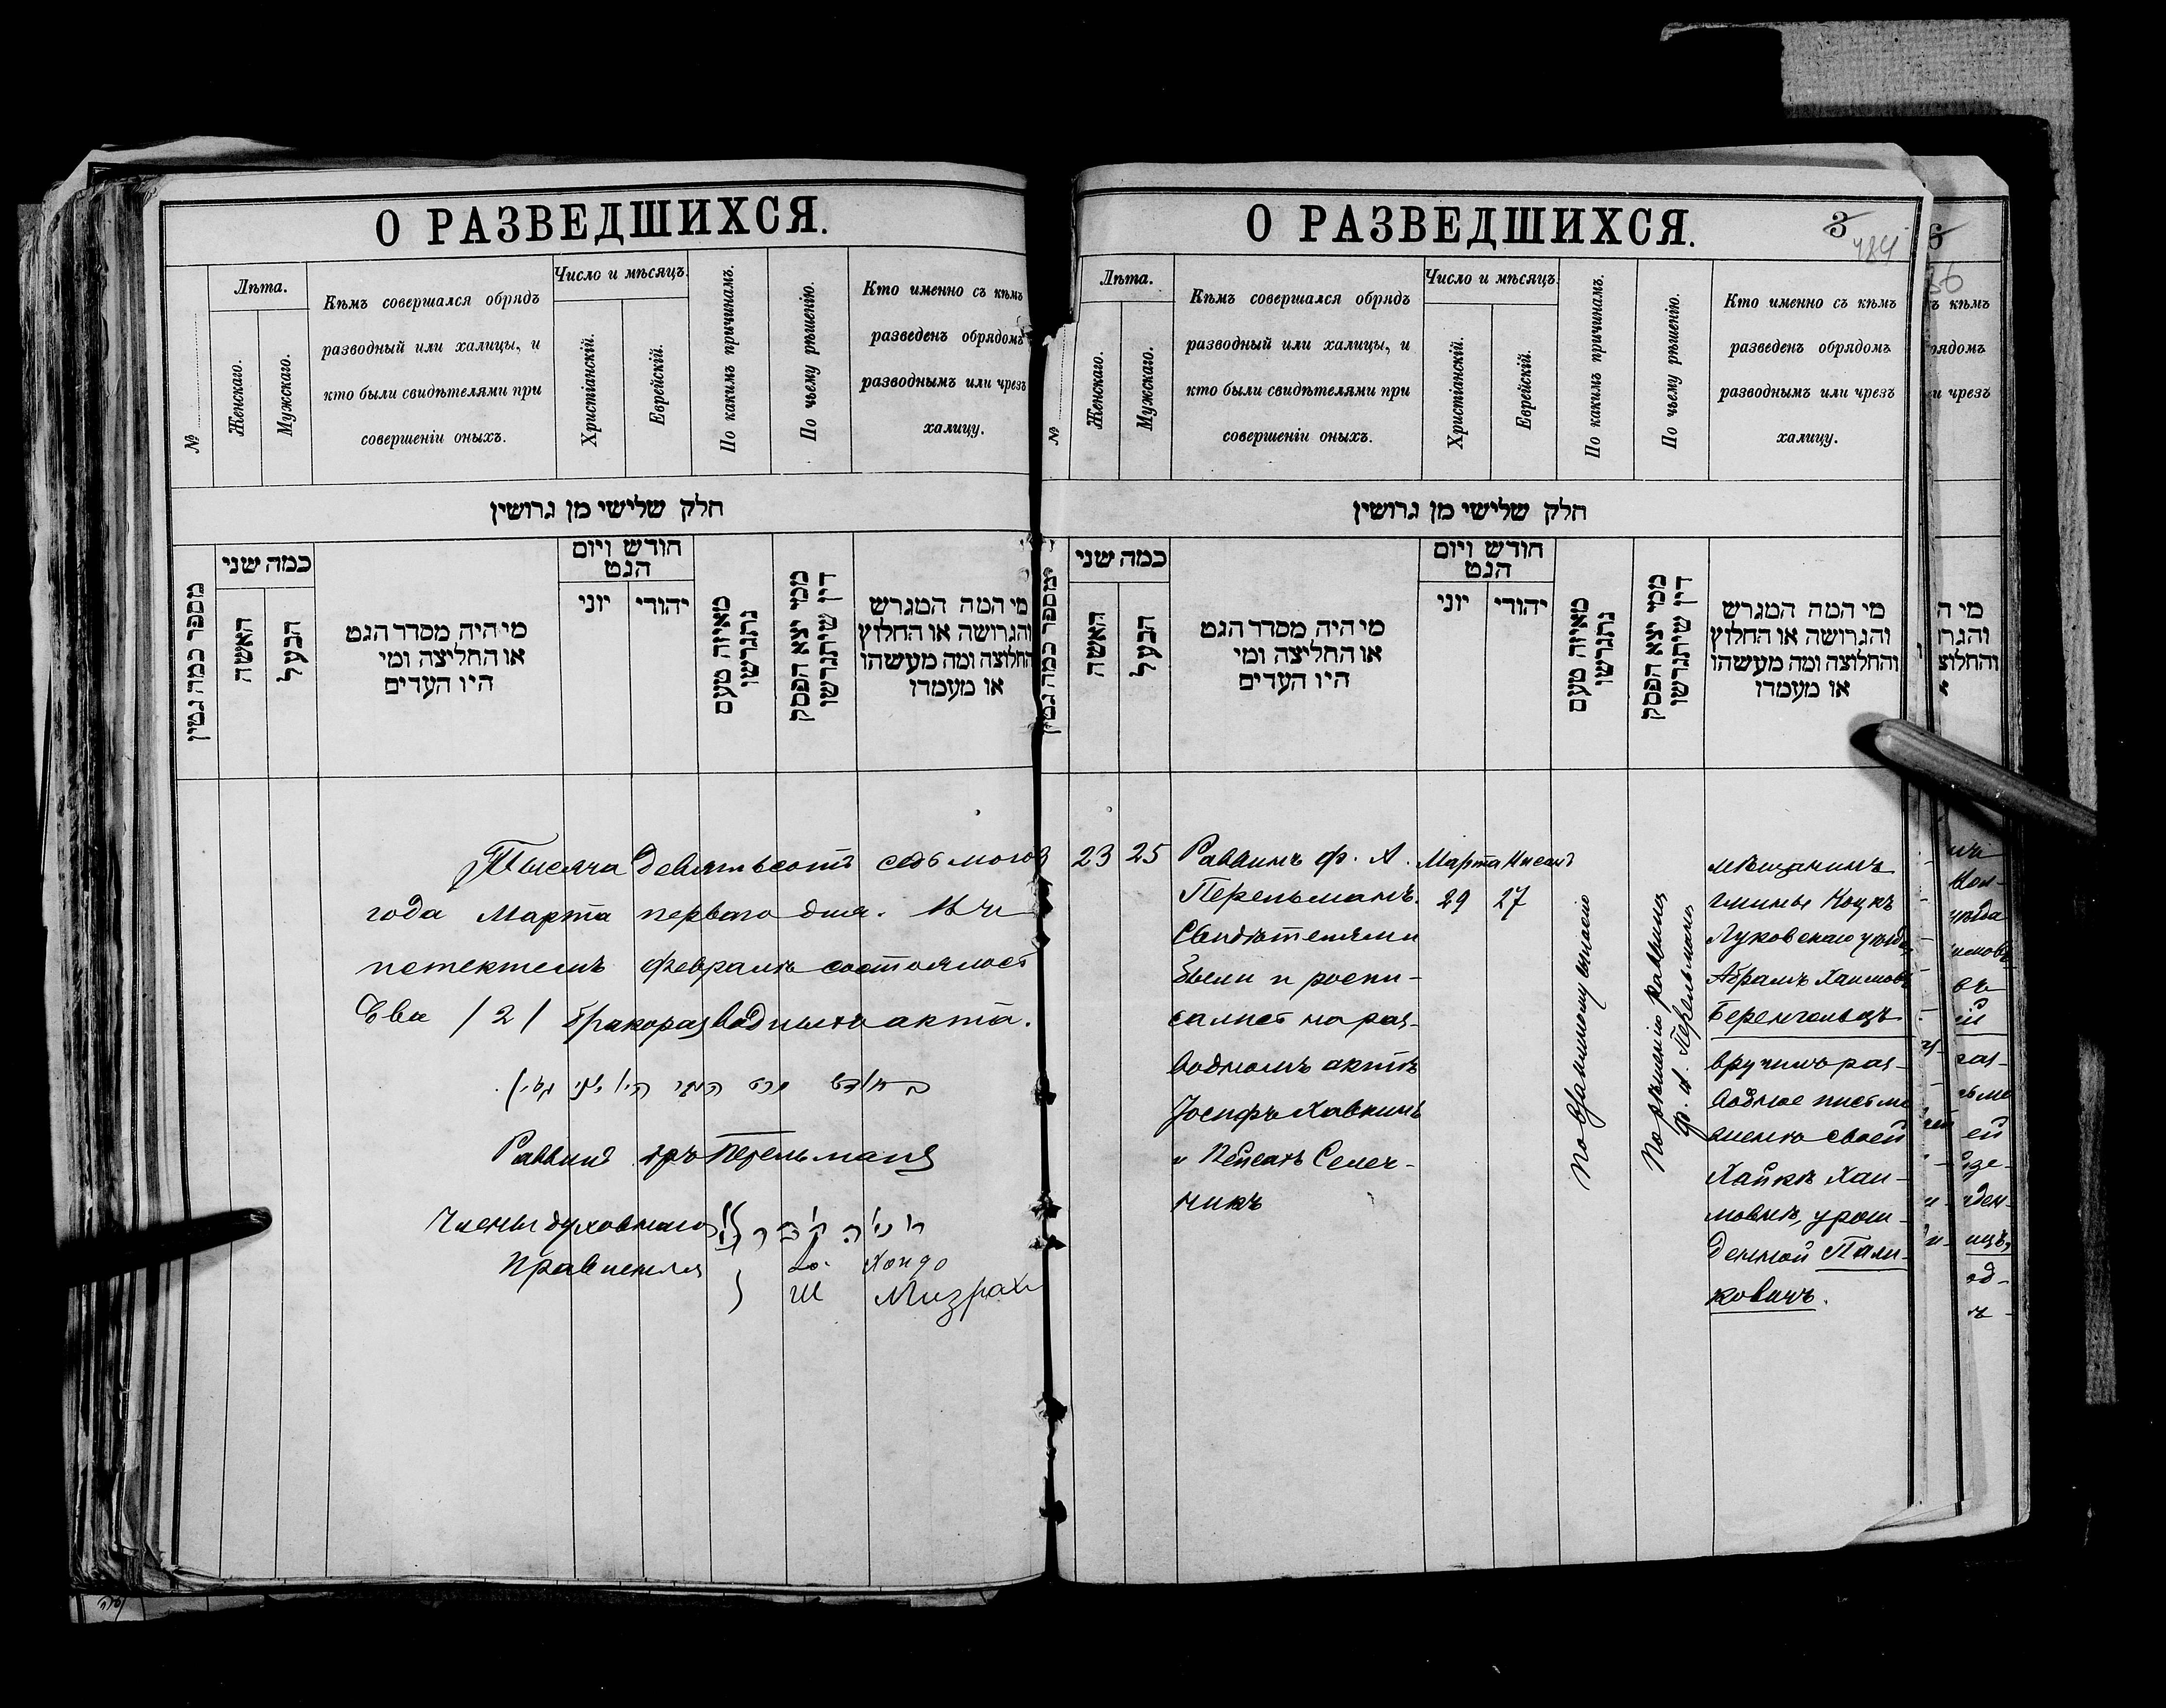 О РАЗВЕДШИХСЯ.
№
Лѣта.
Женскаго.
Мужскаго.
Кѣмъ совершался обрядъ
разводный или халицы, и
кто были свидѣтелями при
совершеніи оныхъ.
Число и мѣсяцъ.
Христіанскій.
Еврейскій.
По какимъ причинамъ.
По чьему рѣшенію.
Кто именно съ кѣмъ
разведенъ обрядомъ
разводнымъ или чрезъ
халицу.
חלק שלישי מן גרושין
מספר כמה גטין
כמה שני
האשה
הבעל
מי היה מסדר הגט
או החליצה ומי
היו העדים
חודש ויום
הגט
יוני
יהודי
מאיזה טעם
נתגרשו
ממי יצא הפסק
דין שיתגרשו
מי המה המגרש
והגרושה או החלוץ
והחלוצה ומה מעשהו
או מעמדו
Тысяча девятьсотъ седьмого
года Марта перваго дня. Въ
истекшемъ февралѣ состоялось
два /2/ бракоразводныхъ акта.
Раввинъ Перельманъ
Члены духовнаго
Правленія
Хондо
Ш Мизрахи
О РАЗВЕДШИХСЯ.
3
484
№
Лѣта.
Женскаго.
Мужскаго.
Кѣмъ совершался обрядъ
разводный или халицы, и
кто были свидѣтелями при
совершеніи оныхъ.
Число и мѣсяцъ.
Христіанскій.
Еврейскій.
По какимъ причинамъ.
По чьему рѣшенію.
Кто именно съ кѣмъ
разведенъ обрядомъ
разводнымъ или чрезъ
халицу.
חלק שלישי מן גרושין
מספר כמה גטין
כמה שני
האשה
הבעל
מי היה מסדר הגט
או החליצה ומי
היו העדים
חודש ויום
הגט
יוני
יהודי
מאיזה טעם
נתגרשו
ממי יצא הפסק
דין שיתגרשו
מי המה המגרש
והגרושה או החלוץ
והחלוצה ומה מעשהו
או מעמדו
23 25
Раввинъ Ф. А.
Перельманъ.
Свидѣтелями
были и роспи-
сались на раз-
водномъ актѣ
Іосифъ Хавкинъ
и Пейсахъ Селеч-
никъ
Марта Нисанъ
29 27
По взаимному
По рѣшенію раввина
Ф. А. Перельмана
мѣщанинъ
гмины Коцкъ
Луковскаго уѣзда
Абрамъ Хаимовъ
Беренгольцъ
вручилъ раз-
водное письмо
женѣ своей
Хайкѣ Хаи-
мовнѣ, урож-
денной Пали-
ковичъ.